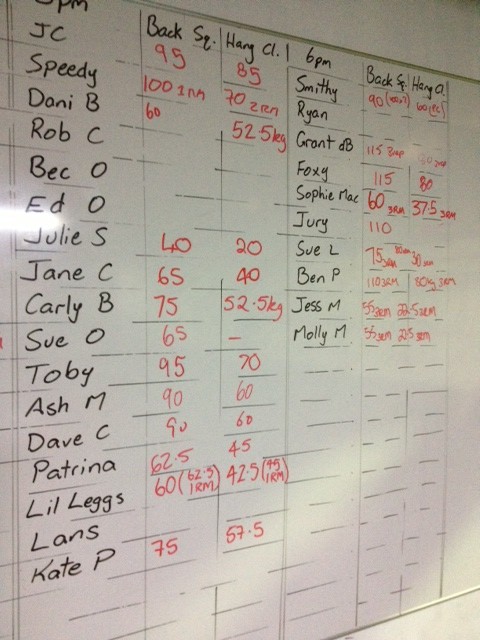 JC Back Sq. Hang Cl.
95 85
Speedy 100 1RM 70 2RM
Dani B 60
Rob C 52.5kg
Bec O
Ed O
Julie S 40 20
Jane C 65 40
Carly B 75 52.5kg
Sue O 65 –
Toby 95 70
Ash M 90 60
Dave C 90 60
Patrina 62.5 45
Lil Leggs 60 (62.5 1RM) 42.5 (45 1RM)
Lans
Kate P 75 57.5
6pm Back Sq. Hang Cl.
Smithy 90
Ryan
Grant dB 115
Foxy 115 80
Sophie Mac 60 3RM 37.5 3RM
Jury 110
Sue L 75 3RM
Ben P 110 3RM 80kg 3RM
Jess M 55 3RM 22.5 3RM
Molly M 55 3RM